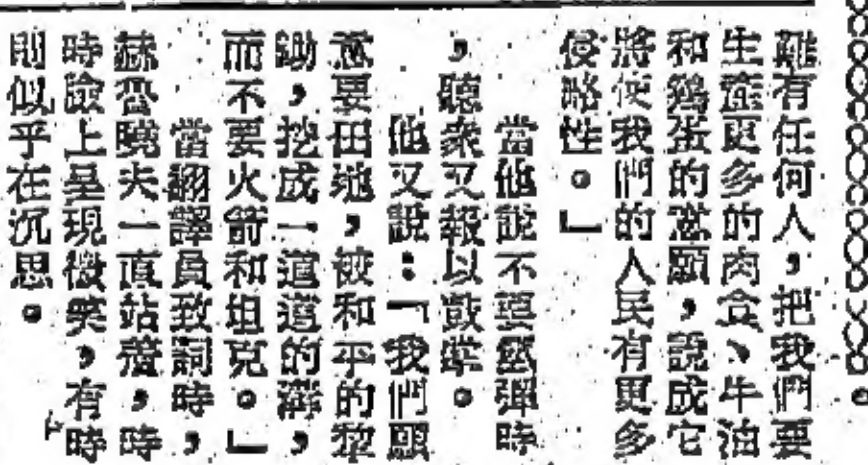 難有任何人，把我們要
生產更多的肉食、牛油
和鷄蛋的意願，說成它
將使我們的人民有更多
侵略性。」
當他說不要氫彈時
，聽衆又報以鼓掌。
他又說：「我們願
意要田地，被和平的犂
鋤，挖成一道道的溝，
而不要火箭和坦克。」
當翻譯員致詞時，
赫魯曉夫一直站着，時
時臉上呈現微笑，有時
則似乎在沉思。